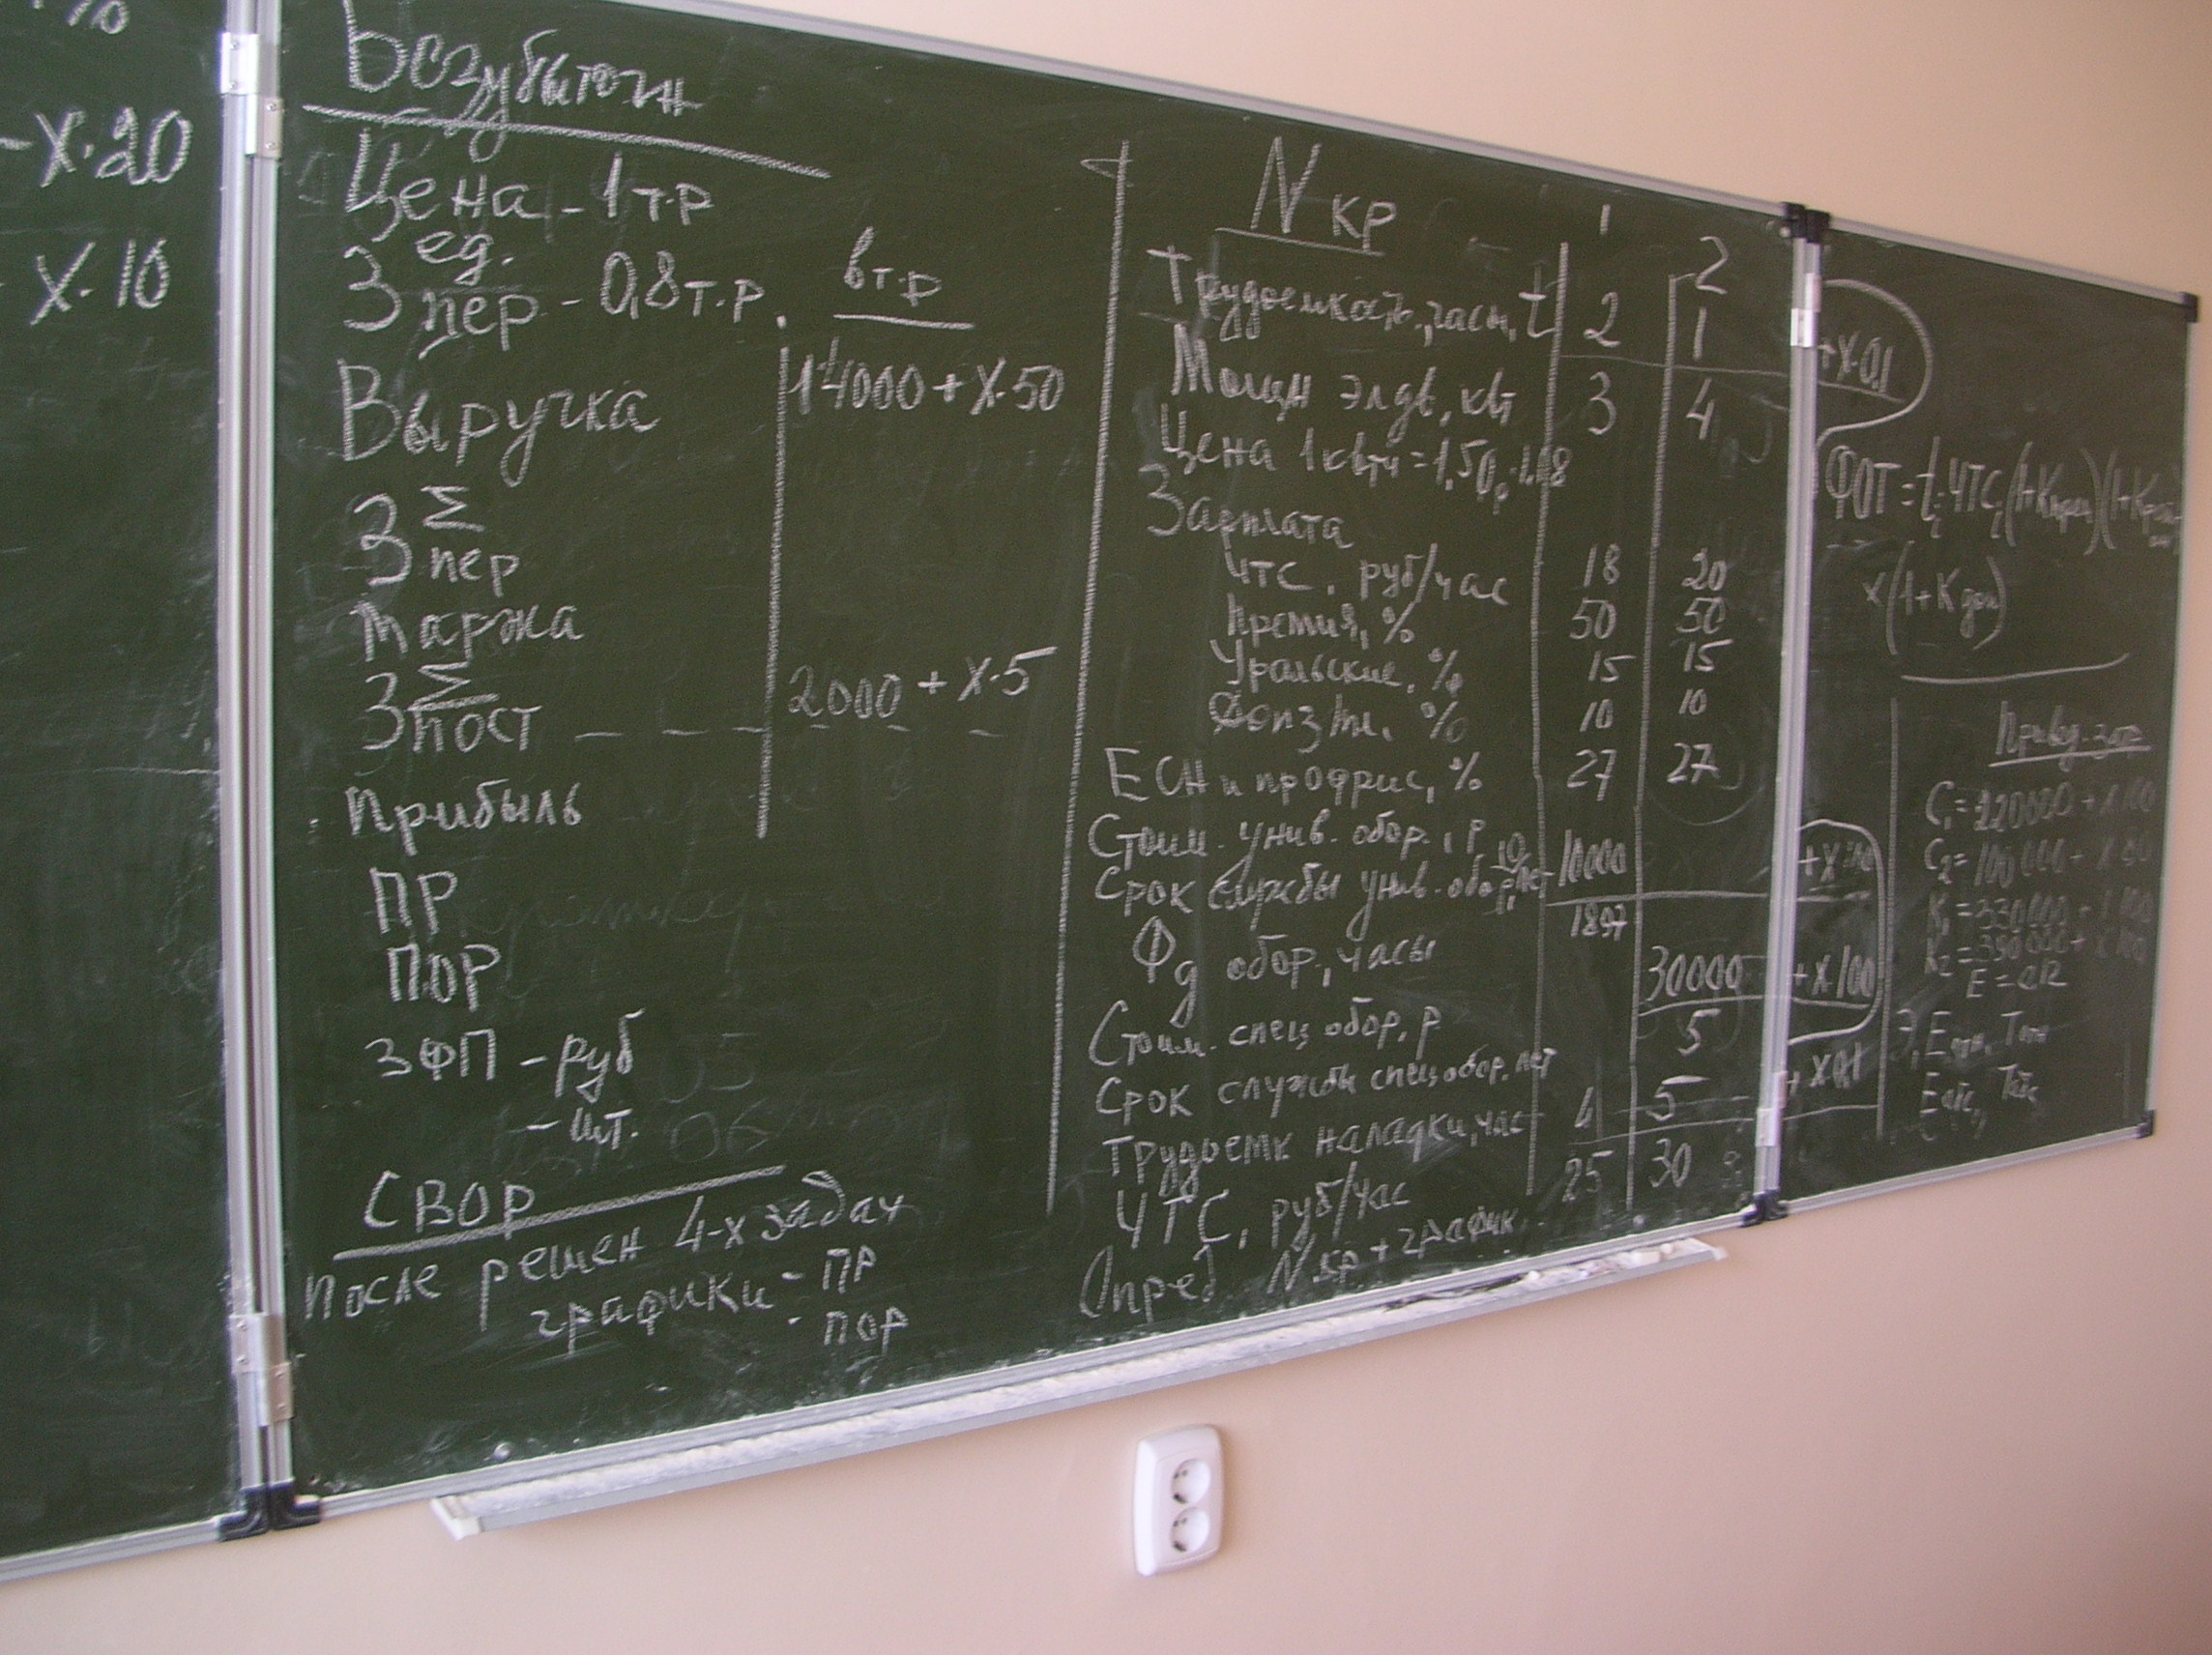 %
- X·20
X·10
Безубыточн
Цена - 1 т.р
З ед. пер - 0,8 т.р.
в т.р
Выручка 14000 + X·50
З Σ пер
Маржа
З Σ пост 2000 + X·5
Прибыль
ПР
ПОР
ЗФП - руб
- шт.
СВОР
После решен 4-х задач
графики - ПР
- ПОР
N кр 1 2
Трудоемкость, часы, t 2 1 + X·0,1
Мощн эл дв, квт 3 4
Цена 1 квтч = 1,50р · 1,18
Зарплата
ЧТС, руб/час 18 20
Премия, % 50 50
Уральские, % 15 15
Доп з/пл, % 10 10
ЕСН и профрис, % 27 27
Стоим. унив. обор., р 10000
Срок службы унив. обор, лет 10
Фд обор, часы 1897
Стоим. спец обор, р 30000 + X·100
Срок службы спец обор, лет 5
Трудоемк наладки, час 4 5 + X·0,1
ЧТС, руб/час 25 30
Опред. Nкр + график
ФОТ = t i · ЧТС i (1 + К прем)(1 +
× (1 + К доп)
Привед. зат
C₁ = 220000 +
C₂ = 100 000 + X
K₁ = 330000 +
K₂ = 390 000 + X
E =
Э, Е отн, Т отн